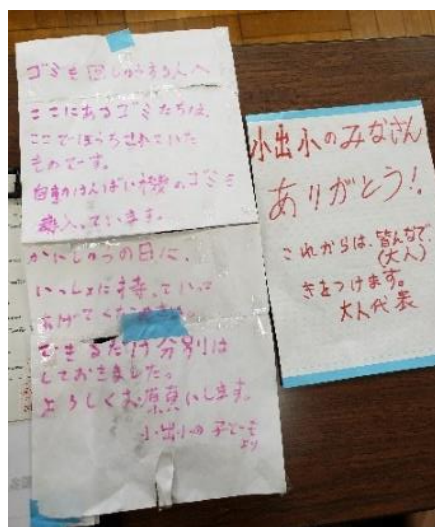 ゴミを回しゅうする人へ
ここにあるゴミたちは、
ここでほうちされていた
ものです。
自動はんばい機のゴミも
入っています。
かいしゅうの日に、
いっしょに持っていって
あげてください
できるだけ分別は
しておきました。
よろしくお願いします。
小出小の子ども
より
小出小のみなさん
ありがとう!
これからは、皆んなで
(大人)
きをつけます。
大人代表